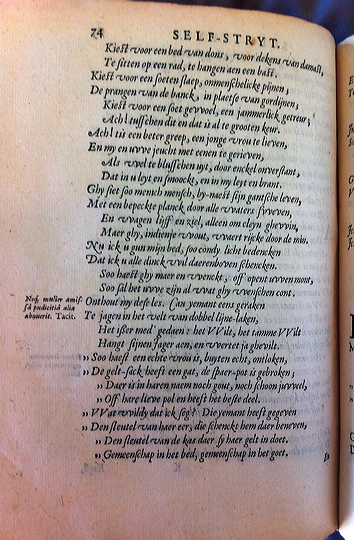 74 SELF-STRYT.
Kiest voor een bed van dons, voor dekens van damast,
Te sitten op een rad, te hangen aen een bast.
Kiest voor een soeten slaep, onmenschelicke pijnen;
De prangen van de banck, in plaetse van gordijnen;
Kiest voor een soet gevoel, een jammerlick getreur;
Ach! tusschen dit en dat is al te grooten keur.
Ach! tis een beter greep, een jonge vrou te lieven,
En my en uwe jeucht met eenen te gerieven,
Als wel te blusschen uyt, door enckel onverstant,
Dat in u leyt en smoockt, en in my leyt en brant.
Ghy siet soo menich mensch, by-naest sijn gantsche leven,
Met een bepeckte planck door alle waters sweven,
En wagen lijf en ziel, alleen om cleyn ghewin,
Maer ghy, indienje wout, waert rijcke door de min.
Nu ick u gun mijn bed, soo condy licht bedencken
Dat ick u alle dinck wil daerenboven schencken.
Soo haest ghy maer en wencke, off opent uwen mont,
Soo sal het uwe zijn al wat ghy wenschen cont.
Neq, mulier amis-
sâ pudicitiâ alia
abnuerit. Tacit.
Onthout my dese les. Can yemant eens geraken
Te jagen in't velt van dobbel lijne-laken,
Het ißer met gedaen: het VVilt, het tamme VVilt
Hangt sijnen Jager aen, en wert et ja ghevilt.
” Soo haest een echte vrou is, buyten echt, ontloken,
” De gelt-sack heeft een gat, de spaer-pot is gebroken;
” Daer is in haren naem noch gout, noch schoon juweel,
” Off hare lieve pol en heeft het beste deel.
” VVat wildy dat ick seg? Die yemant heeft gegeven
” Den sleutel van haer eer, die schenckt hem daer beneven,
” Den sleutel van de kas daer sy haer gelt in doet.
” Gemeenschap in het bed, gemeenschap in het goet.